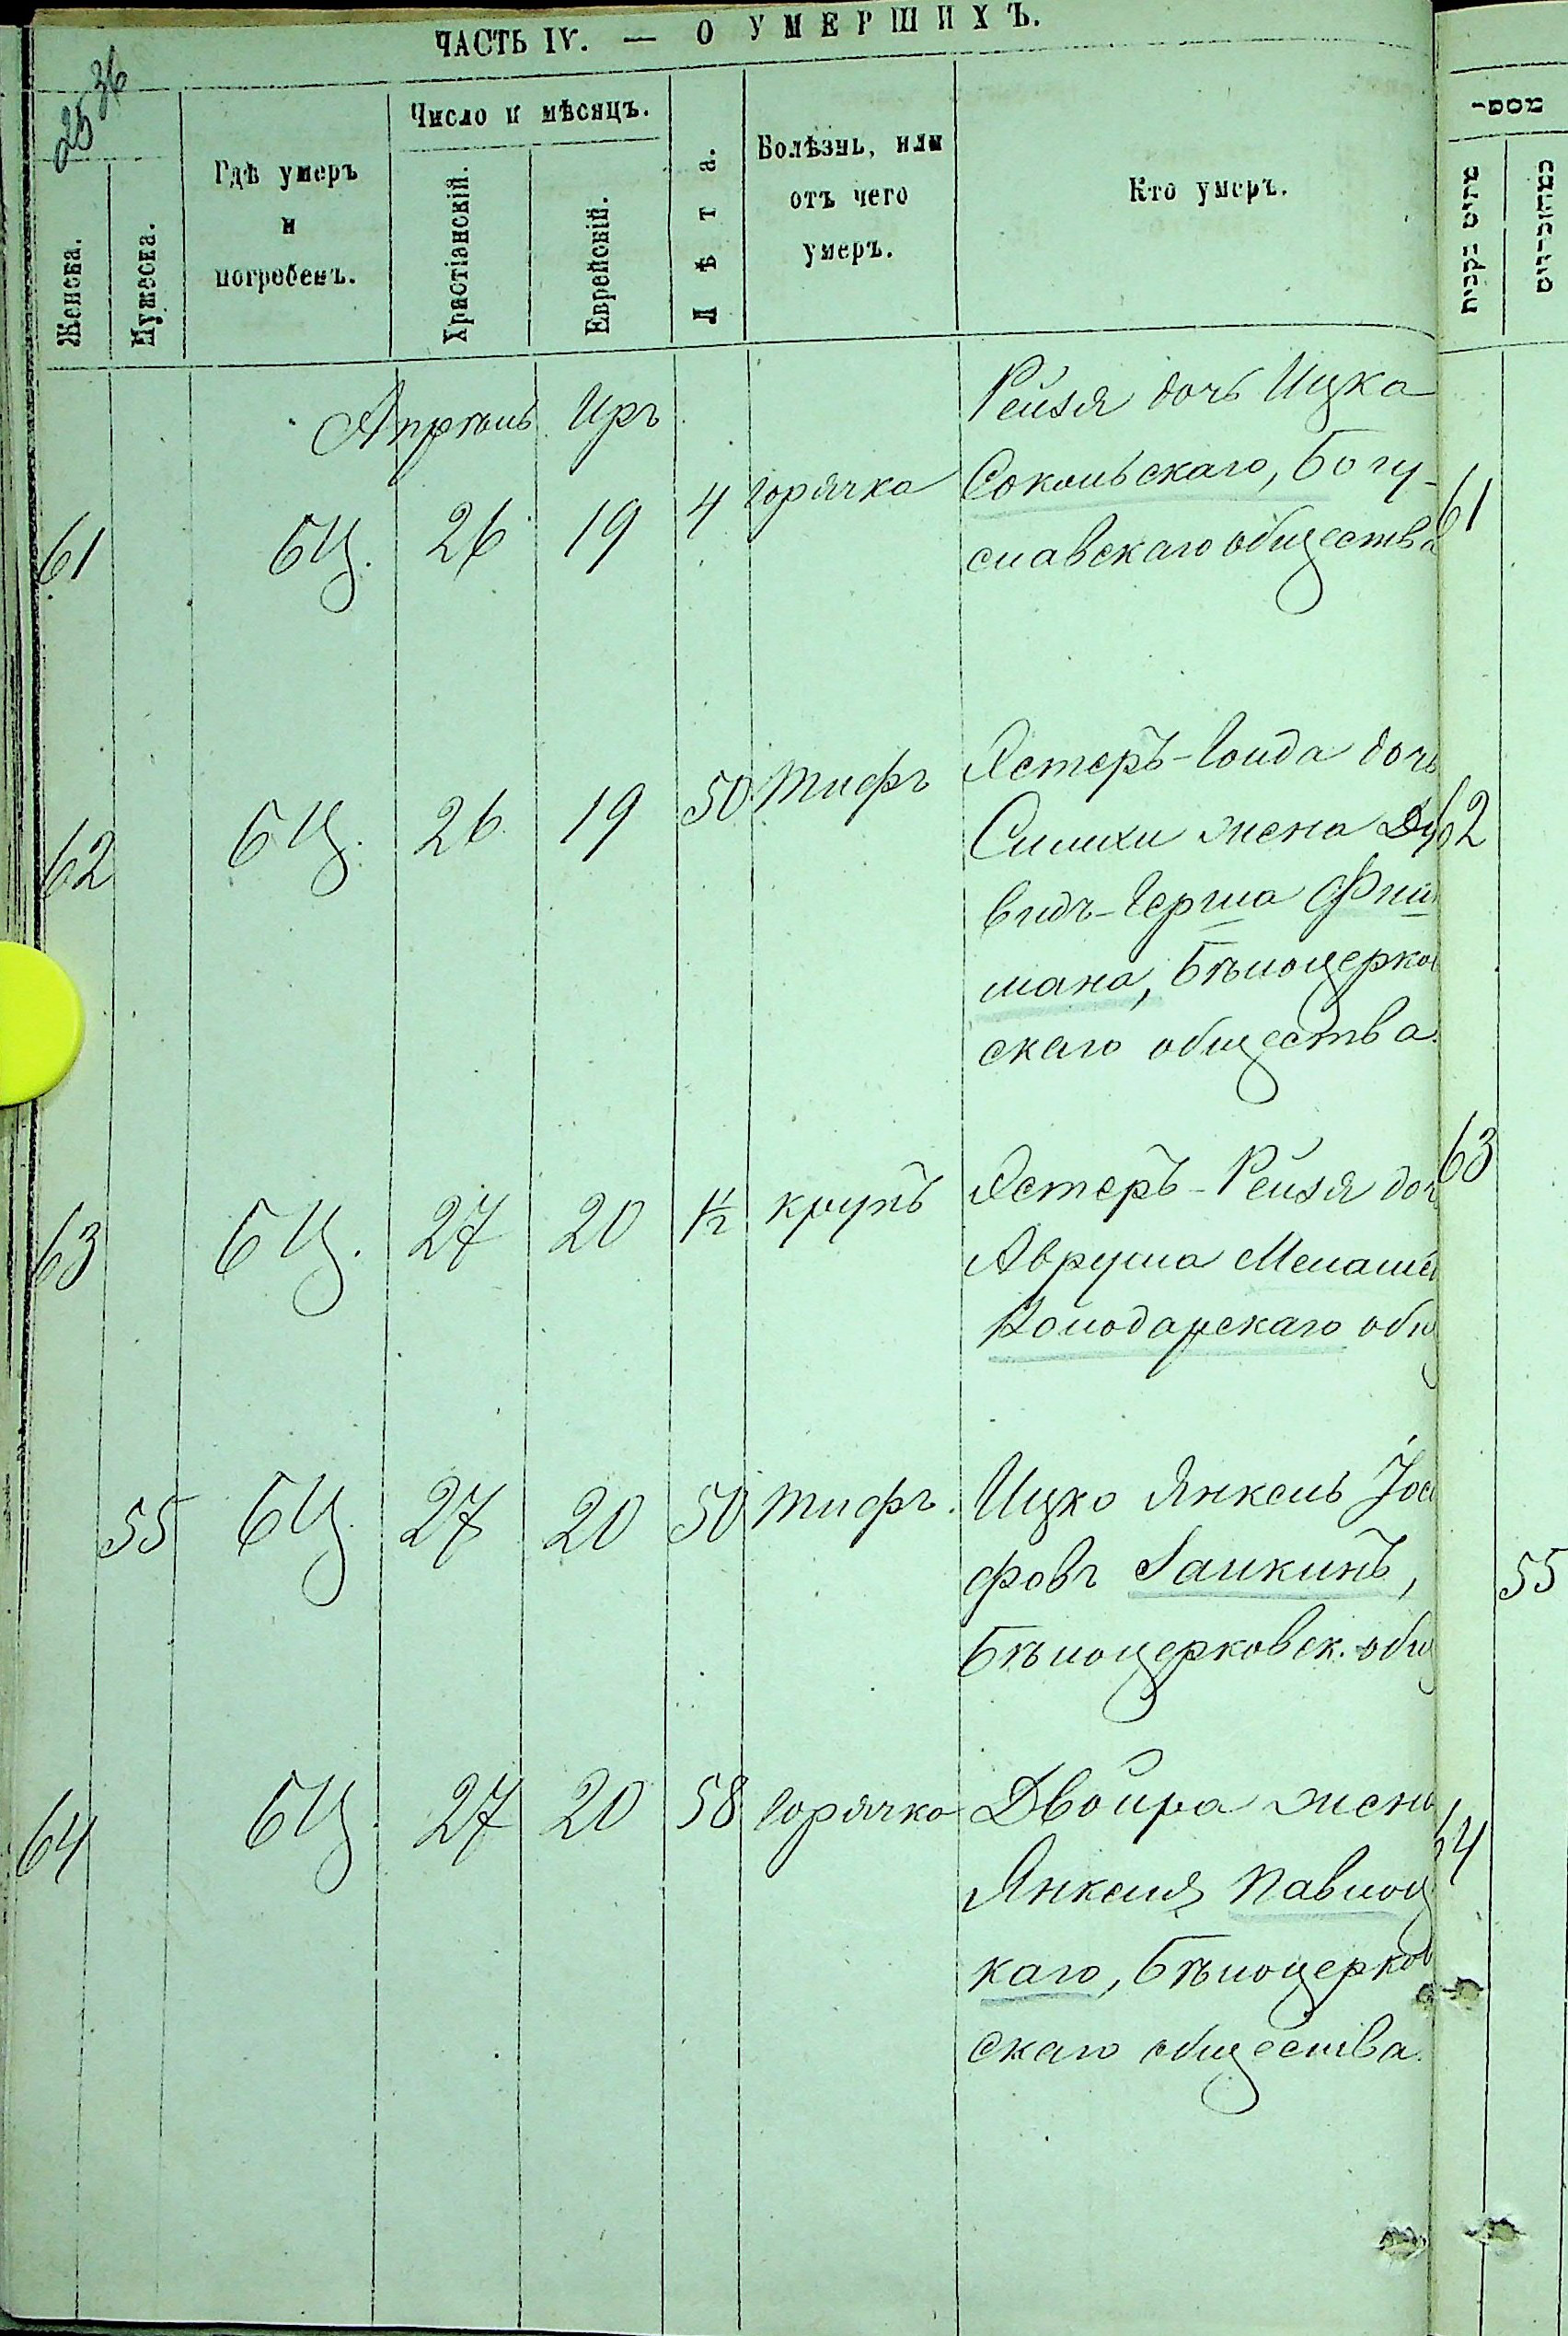 ЧАСТЬ IV. — О УМЕРШИХЪ.
25 36
Женска.
Мужеска.
Гдѣ умеръ
и
погребенъ.
Число и мѣсяцъ.
Христіанскій.
Еврейскій.
Лѣта.
Болѣзнь, или
отъ чего
умеръ.
Кто умеръ.
Апрѣль Иръ
61 БЦ. 26 19 4 горячка
Рейзя дочь Ицка
Сокольскаго, Богу-
славскаго общества
62 БЦ. 26 19 50 Тифъ
Ястеръ-Голда дочь
жена Да
видъ-Герша
мана, Бѣлоцерков
скаго общества.
63 БЦ. 27 20 1/2 крупъ
Ястеръ-Рейзя доч
Аврума
Володарскаго общ
55 БЦ. 27 20 50 Тифъ.
Ицко Янкель Іос
фовъ Галкинъ,
Бѣлоцерковск. общ
64 БЦ. 27 20 58 Горячка
Двойра жена
Янкеля Павлоц
каго, Бѣлоцерков
скаго общества.
61
62
63
55
64